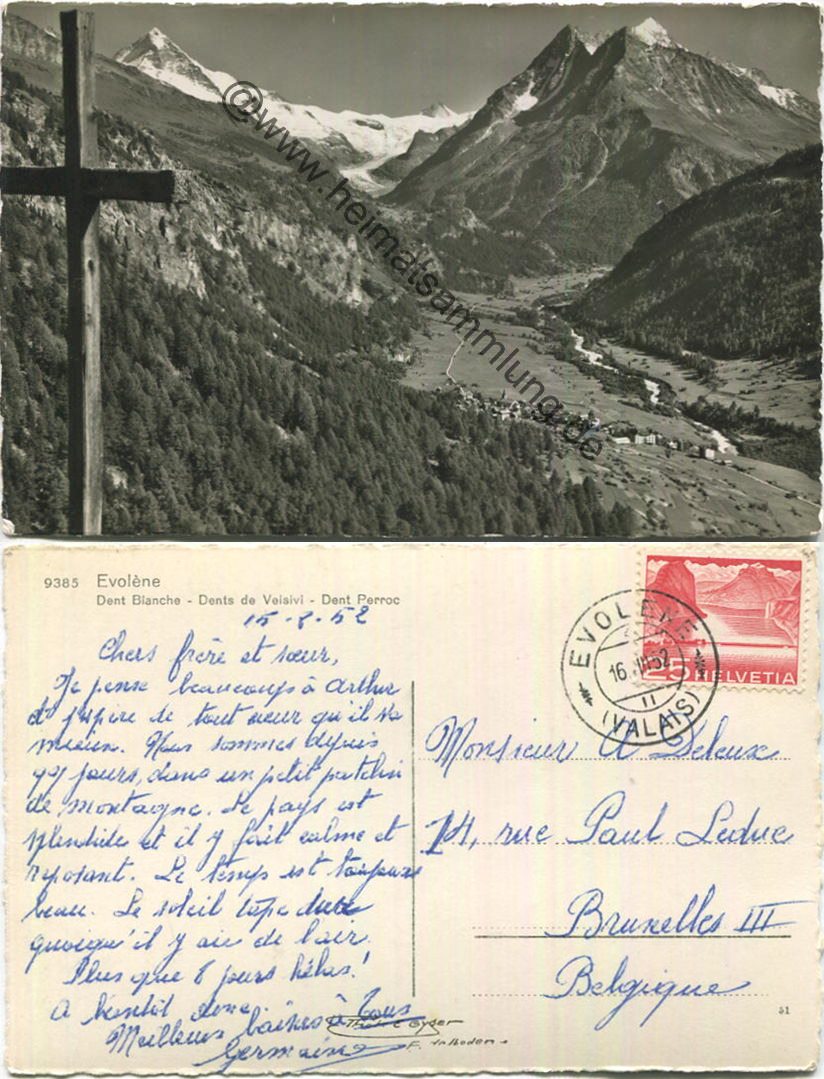 @www.heimatsammlung.de
9385 Evolène
Dent Blanche - Dents de Veisivi - Dent Perroc
15-8-52
Chers frère et sœur,
Je pense beaucoup à Arthur
et j'espère de tout cœur qu'il va
mieux. Nous sommes depuis
qq jours, dans un petit patelin
de montagne. Le pays est
splendide et il y fait calme et
reposant. Le temps est toujours
beau. Le soleil tape dure
quoiqu'il y aie de l'air.
Plus que 8 jours hélas!
A bientôt donc.
Meilleurs baisers à tous
Germaine
EVOLENE
16. VIII. 52
(VALAIS)
25 HELVETIA
Monsieur A Deleux
14, rue Paul Leduc
Bruxelles III
Belgique
51